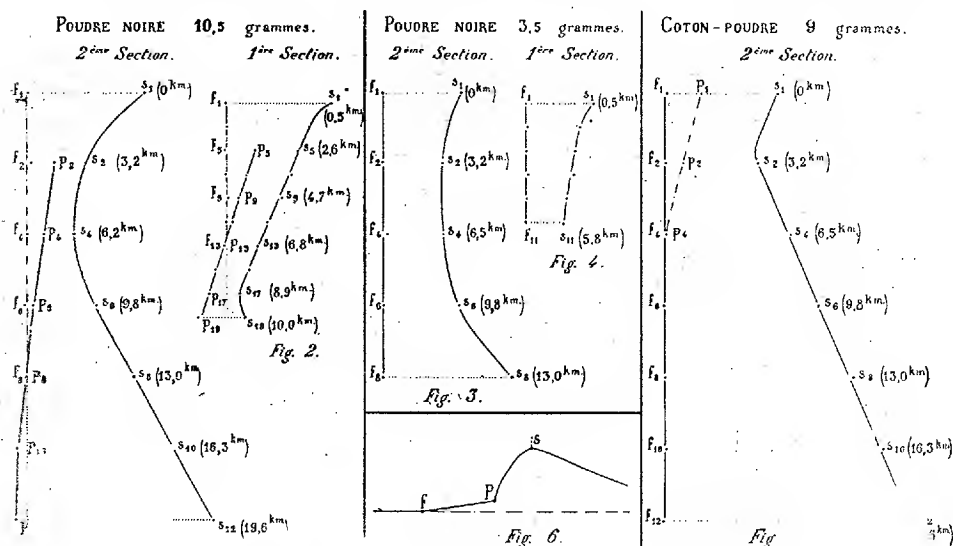 POUDRE NOIRE 10,5 grammes.
2ème Section. 1ère Section.
f1 s1 (0km)
f2 p2 s2 (3,2km)
f4 p4 s4 (6,2km)
s6 (9,8km)
p8
(13,0km)
s10 (16,3km)
s12 (19,6km)
f1 s1 (0,5km)
f5 p5 s5 (2,6km)
p9 s9 (4,7km)
f13 p13 s13 (6,8km)
p17 s17 (8,9km)
p19 s19 (10,0km)
Fig. 2.
POUDRE NOIRE 3,5 grammes.
2ème Section. 1ère Section.
f1 s1 (0km)
f2 s2 (3,2km)
f4 s4 (6,5km)
f6 s6 (9,8km)
f8 s8 (13,0km)
Fig. 3.
f1 s1 (0,5km)
f11 s11 (5,8km)
Fig. 4.
f P s
Fig. 6.
COTON-POUDRE 9 grammes.
2ème Section.
f1 p1 s1 (0km)
f2 p2 s2 (3,2km)
f4 p4 s4 (6,5km)
f6 s6 (9,8km)
f8 s8 (13,0km)
f10 s10 (16,3km)
f12
Fig